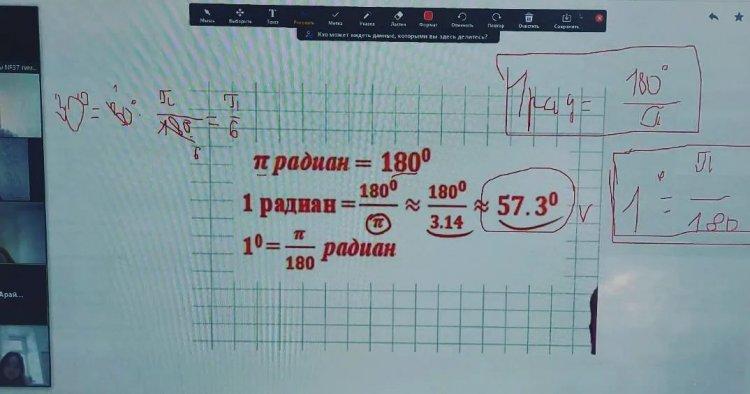 Мышь Выбрать Текст Рисовать Метка Указка Ластик Формат Отменить Повтор Очистить Сохранить
Кто может видеть данные, которыми вы здесь делитесь?
30⁰ = 30⁰ · π/180 = π/6
6
1рад = 180⁰/π
π радиан = 180⁰
1 радиан = 180⁰/π ≈ 180⁰/3.14 ≈ 57.3⁰
1⁰ = π/180
1⁰ = π/180 радиан
Арай...